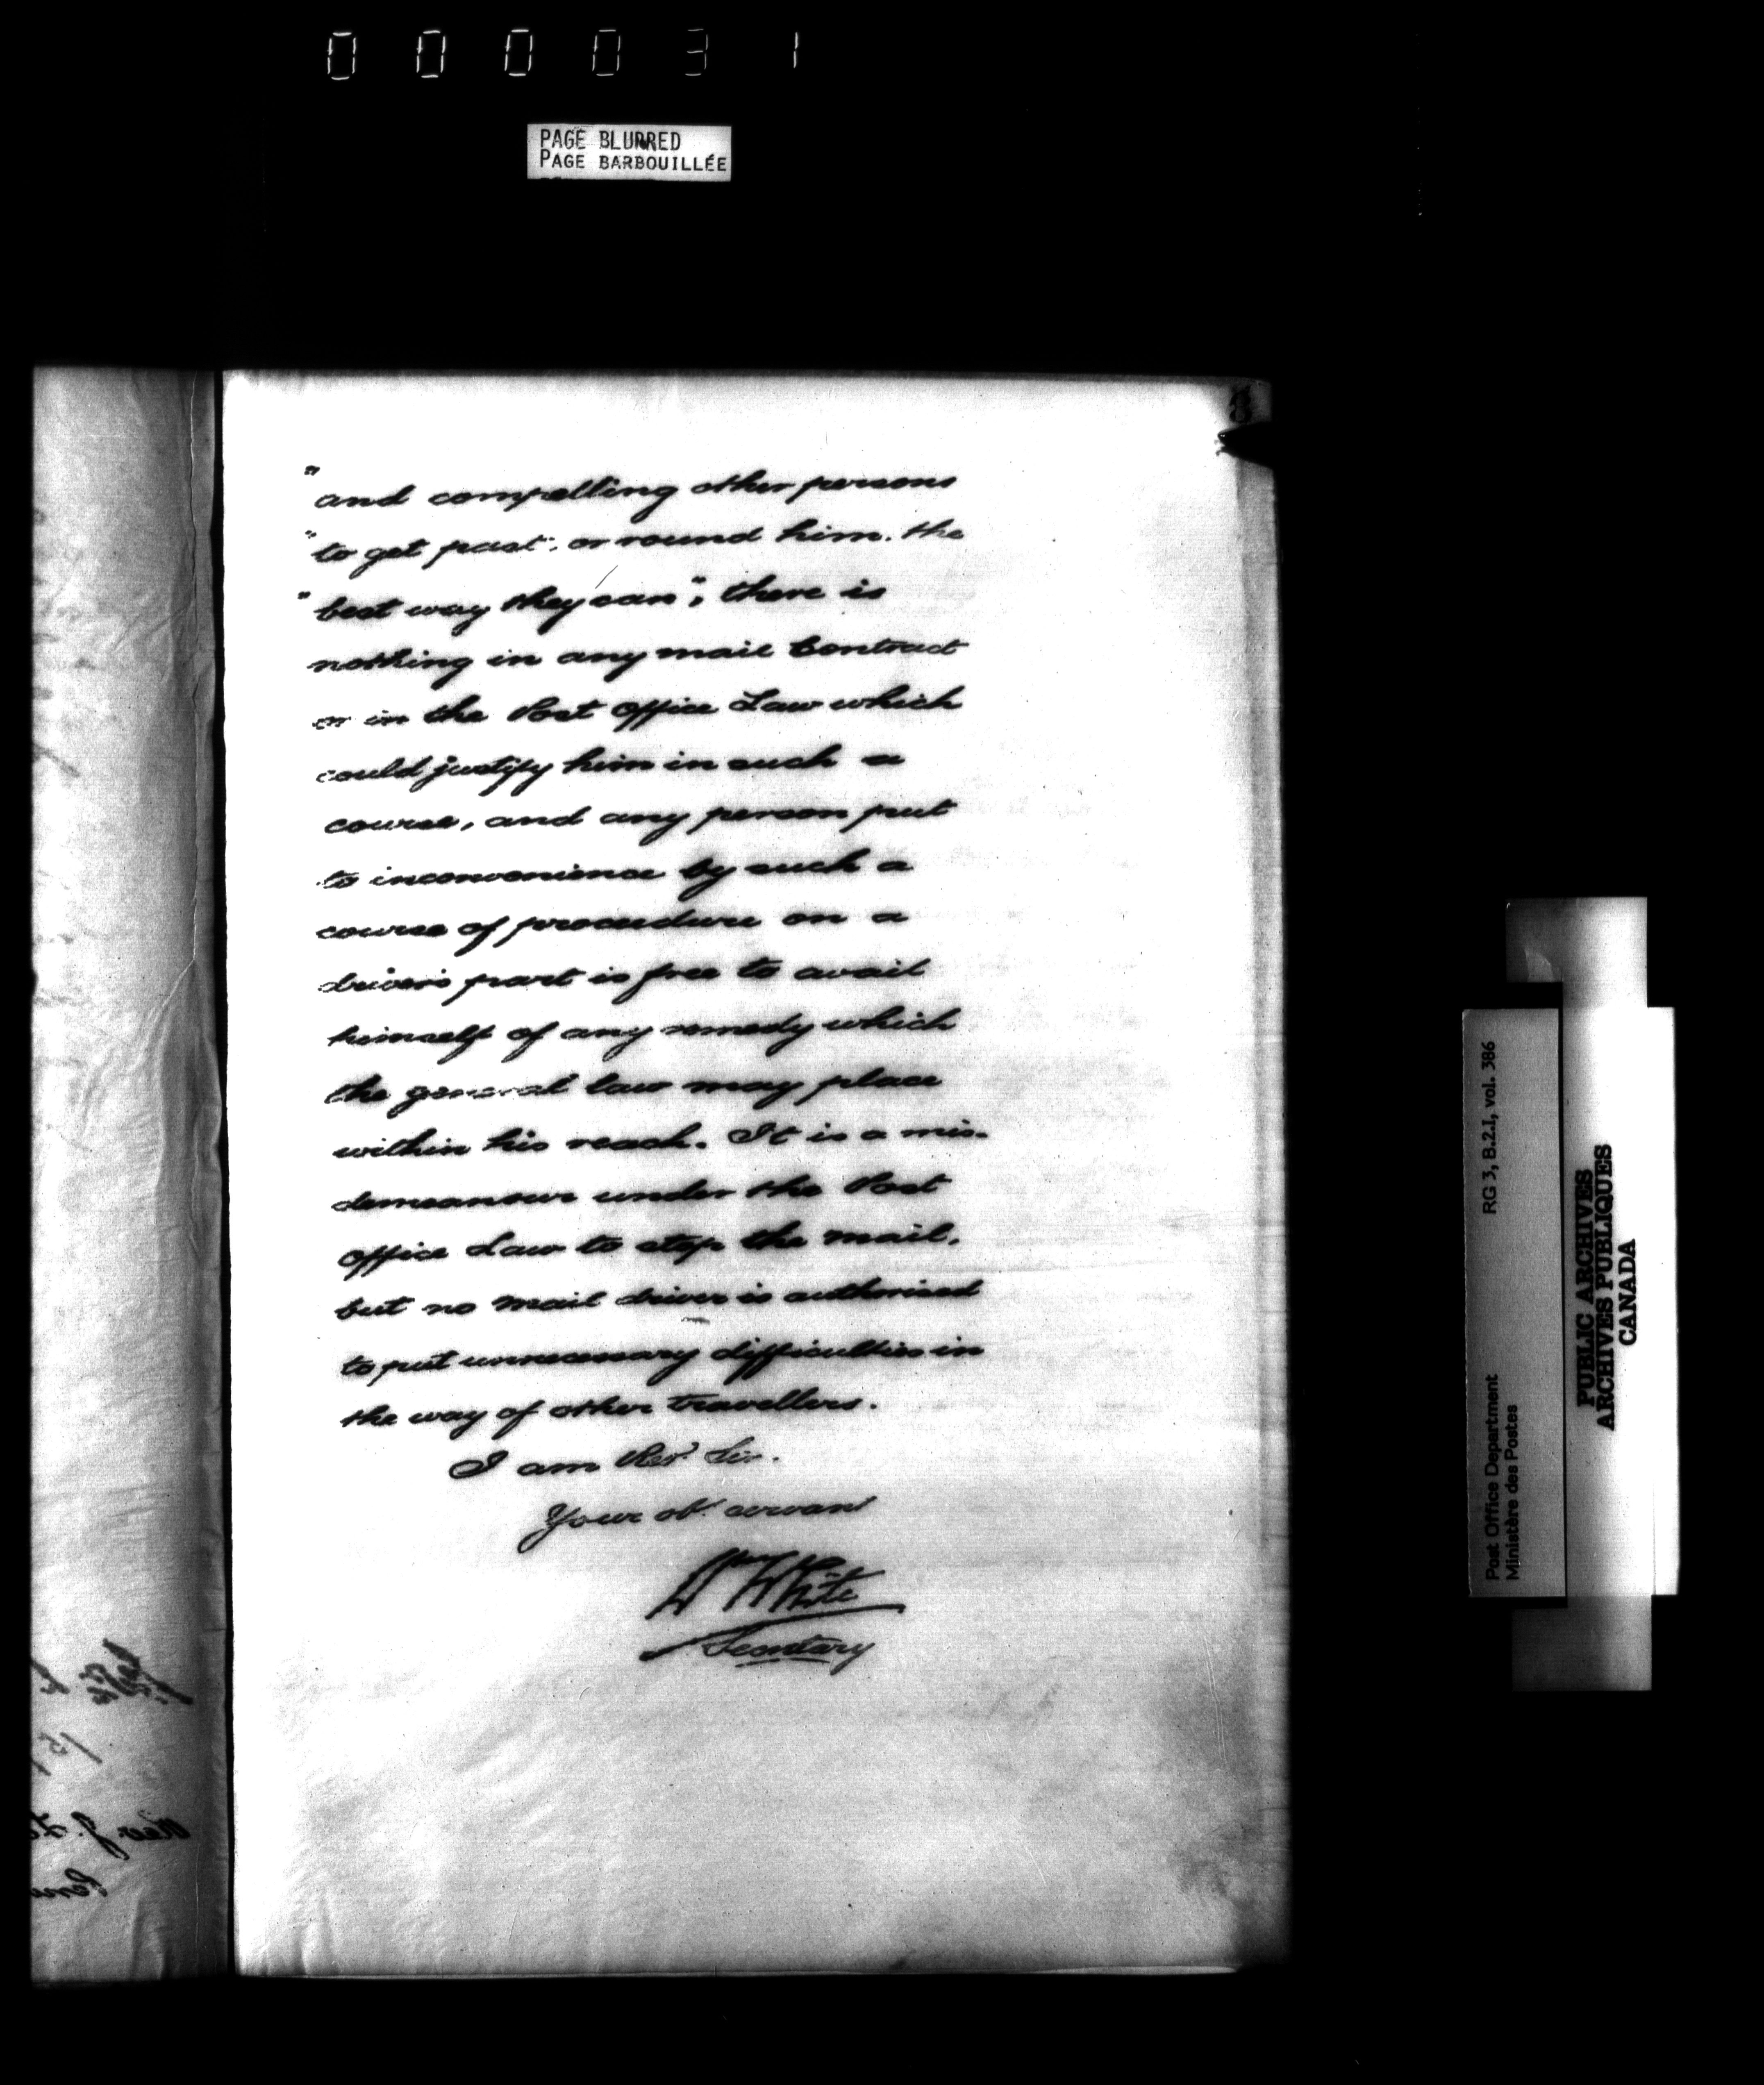 000031
PAGE BLURRED
PAGE BARBOUILLÉE
"and compelling other persons
"to get past, or round him, the
"best way they can", there is
nothing in any mail Contract
or in the Post Office Law which
could justify him in such a
course, and any person put
to inconvenience by such a
course of procedure on a
driver's part is free to avail
himself of any remedy which
the general law may place
within his reach. It is a mis-
demeanour under the Post
Office Law to stop the mail,
but no mail driver is authorised
to put unnecessary difficulties in
the way of other travellers.
I am Revd. Sir.
Your obt. servant
Wm White
Secretary
Post Office Department RG 3, B.2.I, vol. 386
Ministère des Postes
PUBLIC ARCHIVES
ARCHIVES PUBLIQUES
CANADA